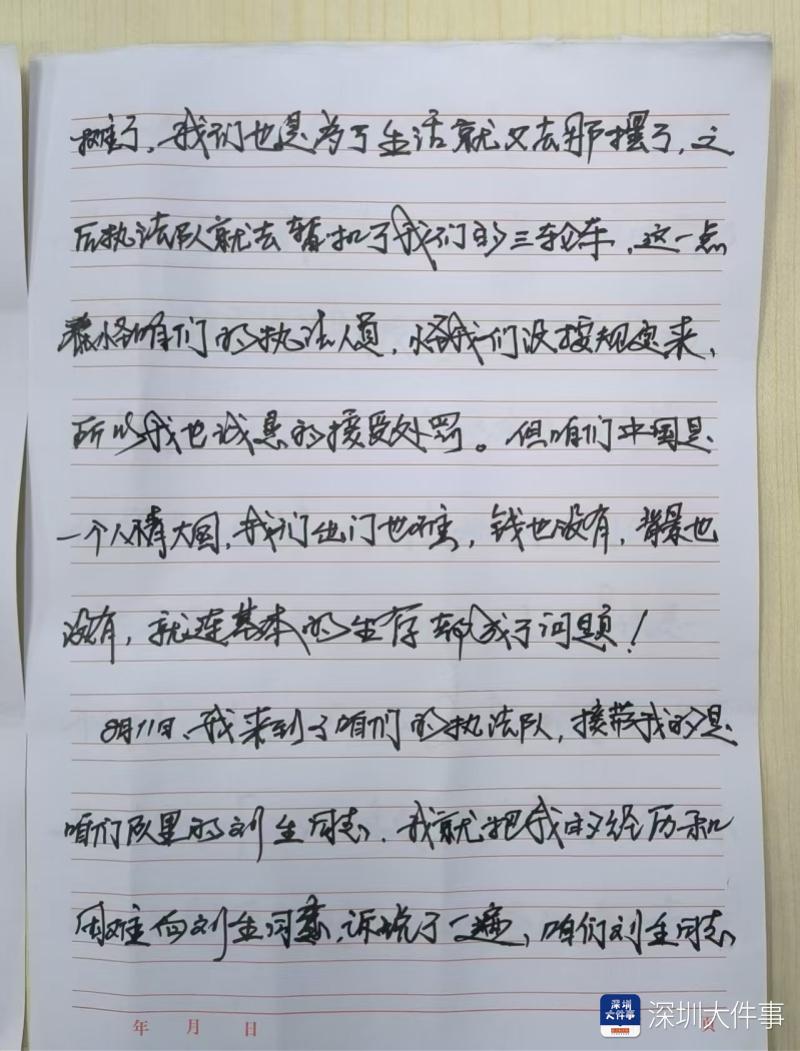 摊了，我们也是为了生活就又去那摆了，之
后执法队就去暂扣了我们的三轮车，这一点
不怪咱们的执法人员，怪我们没按规定来，
所以我也诚恳的接受处罚。但咱们中国是
一个人情大国，我们出门也难，钱也没有，背景也
没有，就连基本的生存都成了问题！
8月11日、我来到了咱们的执法队，接待我的是
咱们队里的刘生同志．我就把我的经历和
困难向刘生同志，诉说了一遍，咱们刘生同志
年 月 日
页
深圳大件事
深圳大件事